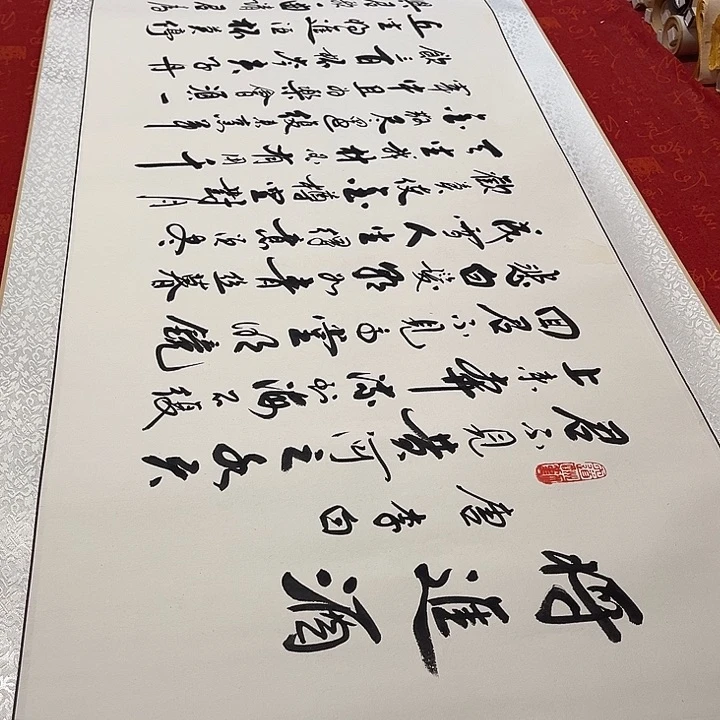 将進酒
唐李白
君不見黄河之水天
上来奔流到海不復
回君不見高堂明鏡
悲白髮朝如青丝暮
成雪人生得意須尽
歡莫使金樽空對月
天生我材必有用千
金散尽還復来烹羊
宰牛且為樂會須一
飲三百杯岑夫子丹
丘生将進酒杯莫停
與君歌一曲請君為